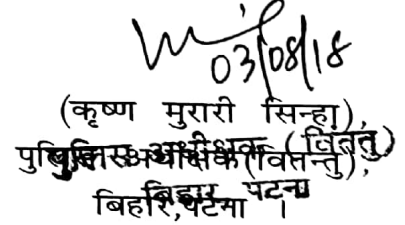 03/08/18
(कृष्ण मुरारी सिन्हा),
पुलिस अधीक्षक (वितन्तु),
बिहार, पटना ।